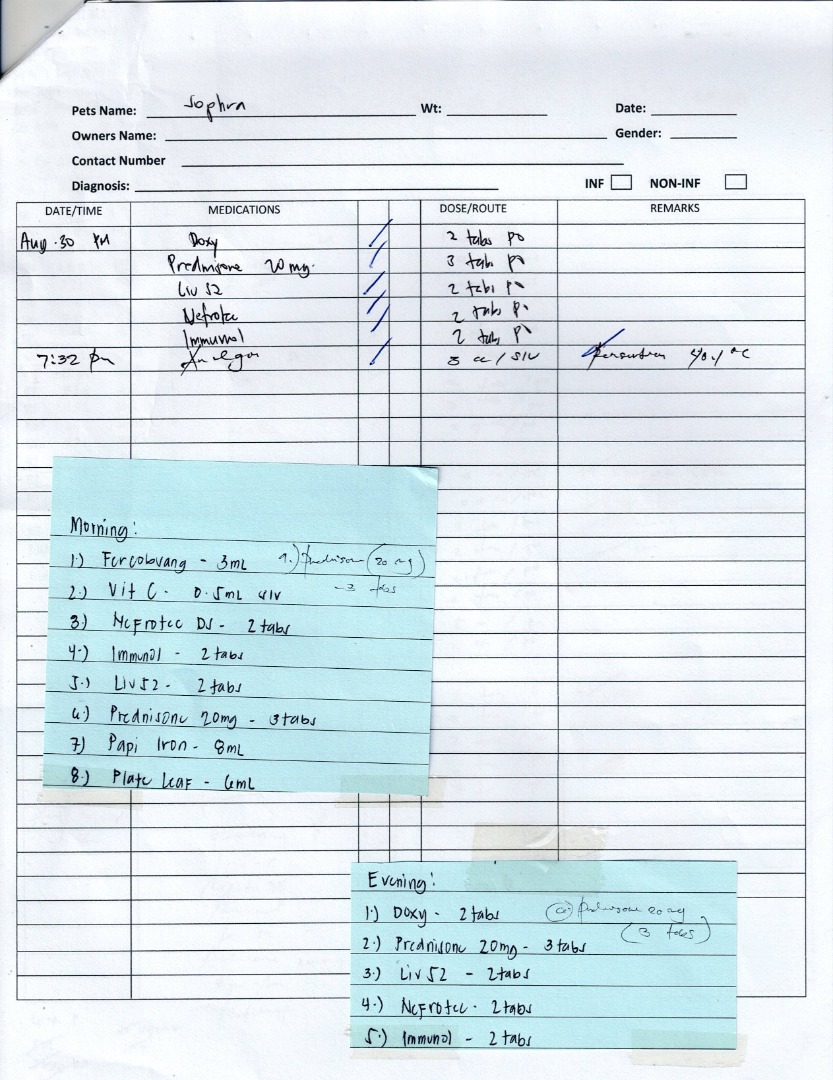 Pets Name: Sophra Wt: Date:
Owners Name: Gender:
Contact Number
Diagnosis: INF NON-INF
DATE/TIME MEDICATIONS DOSE/ROUTE REMARKS
Aug. 30 PM Doxy 2 tabs PO
Prednisone 20 mg. 3 tab PO
Liv 52 2 tabs PO
Nefrotec 2 tabs PO
Immunol 2 tabs PO
7:32 pm Analgin 3 cc / SIV
Morning:
1.) Fercobvang - 3mL 9.) Prednison (20 mg)
2.) Vit C - 0.5mL SIV - 3 tabs
3.) Nefrotec DS - 2 tabs
4.) Immunol - 2 tabs
5.) Liv 52 - 2 tabs
6.) Prednisone 20mg - 3 tabs
7.) Papi Iron - 8mL
8.) Plate Leaf - 6mL
Evening:
1.) Doxy - 2 tabs 6.) Prednisone 20 mg
2.) Prednisone 20mg - 3 tabs (3 tabs)
3.) Liv 52 - 2 tabs
4.) Nefrotec - 2 tabs
5.) Immunol - 2 tabs